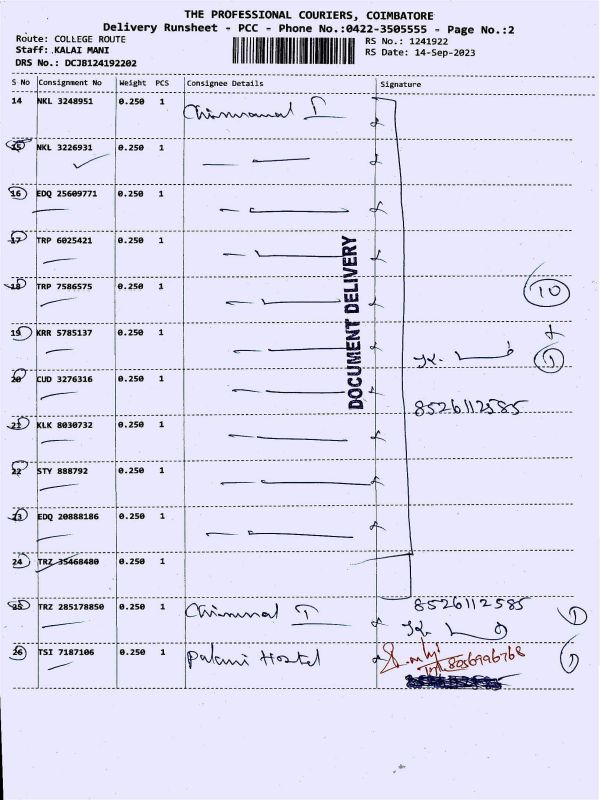 THE PROFESSIONAL COURIERS, COIMBATORE
Delivery Runsheet - PCC - Phone No.:0422-3505555 - Page No.:2
Route: COLLEGE ROUTE
Staff: KALAI MANI
DRS No.: DCJB124192202
RS No.: 1241922
RS Date: 14-Sep-2023
S No Consignment No Weight PCS Consignee Details Signature
14 NKL 3248951 0.250 1
15 NKL 3226931 0.250 1
16 EDQ 25609771 0.250 1
17 TRP 6025421 0.250 1
18 TRP 7586575 0.250 1
10
19 KRR 5785137 0.250 1
1
20 CUD 3276316 0.250 1
8526112585
21 KLK 8030732 0.250 1
22 STY 888792 0.250 1
23 EDQ 20888186 0.250 1
24 TRZ 35468480 0.250 1
25 TRZ 285178850 0.250 1 8526112585 1
26 TSI 7187106 0.250 1 Palani Hostel 8056996768 1
DOCUMENT DELIVERY